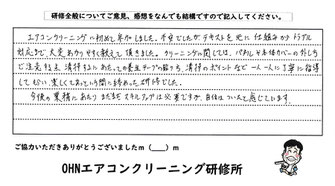 研修全般についてご意見、感想をなんでも結構ですので記入してください。
エアコンクリーニングに初めて参加しました。不安でしたがテキストを元に仕組みからトラブル
対応まで大変わかりやすく教えて頂きました。クリーニングに関しては、パネルや本体カバーの外し方
ご注意する、清掃するにあたっての養生テープの貼り方、清掃のポイントなど一人一人に丁寧に指導
して
間に終わった研修でした。
今後の業務にあたり まだまだ スキルアップは必要ですが、自信はついたと感じてします。
ご協力いただきありがとうございましたm（__）m
OHNエアコンクリーニング研修所